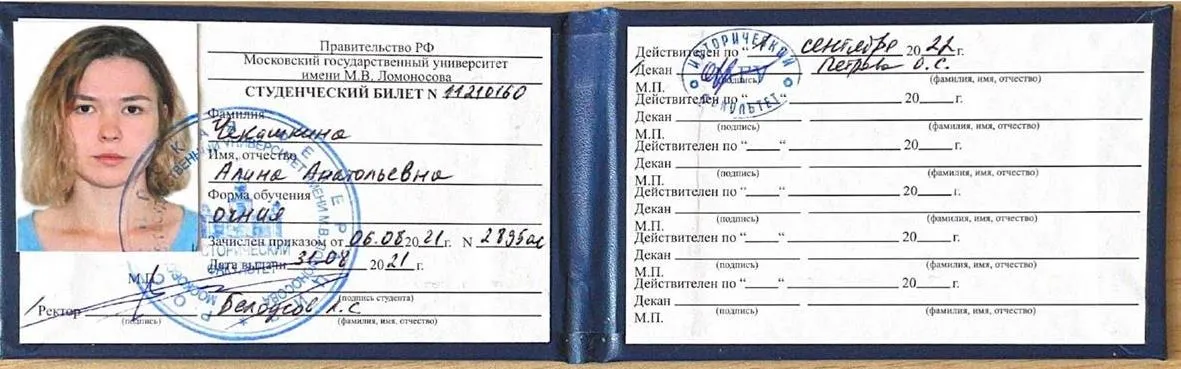 Правительство РФ
Московский государственный университет
имени М.В. Ломоносова
СТУДЕНЧЕСКИЙ БИЛЕТ N 11210160
Фамилия
Чекашкина
Имя, отчество
Алина Анатольевна
Форма обучения
очная
Зачислен приказом от 06.08 2021 г. N 2895ас
Дата выдачи 31.08 2021 г.
М.П.
(подпись студента)
Ректор Белоусов
(подпись) (фамилия, имя, отчество)
ИСТОРИЧЕСКИЙ
ФАКУЛЬТЕТ
Действителен по “1 сентября 2022 г.
Декан Петрова О.С.
(подпись) (фамилия, имя, отчество)
М.П.
Действителен по “____“ 20____ г.
Декан
(подпись) (фамилия, имя, отчество)
М.П.
Действителен по “____“ 20____ г.
Декан
(подпись) (фамилия, имя, отчество)
М.П.
Действителен по “____“ 20____ г.
Декан
(подпись) (фамилия, имя, отчество)
М.П.
Действителен по “____“ 20____ г.
Декан
(подпись) (фамилия, имя, отчество)
М.П.
Действителен по “____“ 20____ г.
Декан
(подпись) (фамилия, имя, отчество)
М.П.